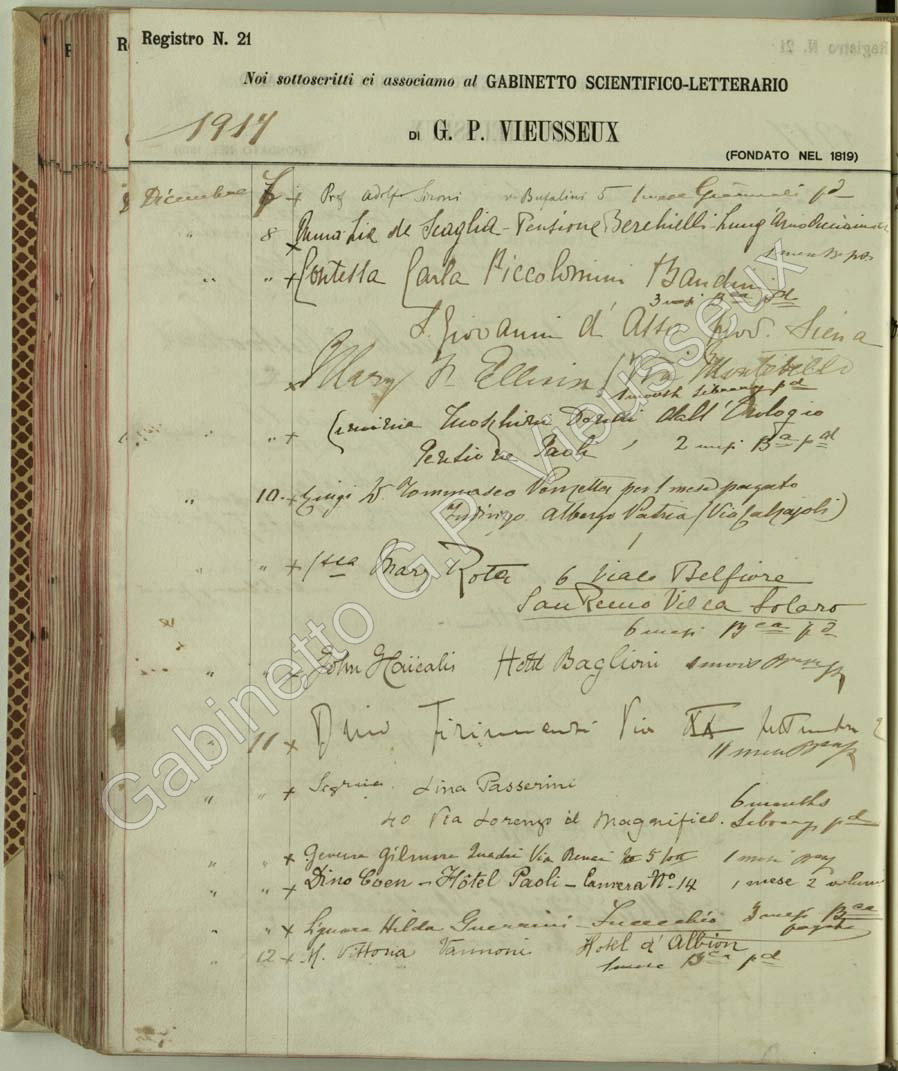 Registro N. 21
Noi sottoscritti ci associamo al GABINETTO SCIENTIFICO-LETTERARIO
1917
DI G. P. VIEUSSEUX
(FONDATO NEL 1819)
Dicembre 7 x Prof Adolfo Sironi v. Bufalini 5 1 mese Giornali pd
" 8 x Lia de Scaglia - Pensione Berchielli - Lung'Arno
" " x Contessa Carla Piccolomini Bandini
3 mesi Bca pd
S. Giovanni d'Asso prov. Siena
x Mary Ellison Via Montebello
1 month Library pd
" x dall'Orologio
Pensione Paoli 2 mesi Ba pd
" 10 - x Luigi di Tommaseo per 1 mese pagato
Indirizzo Albergo Patria (Via Calzajoli)
" " x Mary Rota 6 Viale Belfiore
San Remo Villa Solaro
6 mesi Bca pd
" " x John Hotel Baglioni 1 mois
" 11 x Dino Via XX Settembre 2
11 mesi
" " x Segrina Lina Passerini
6 months
40 Via Lorenzo il Magnifico. Library pd
" " x Gilmore Quadri Via 5 1 mese
" " x Dino Coen - Hôtel Paoli - Camera No. 14 1 mese 2 volumi
" " x Signora Hilda Guerrini - Fucecchio 3 mesi Bca
pagato
" 12 x M. Vittoria Vannoni Hotel d'Albion
1 mese Bca pd
Gabinetto G.P. Vieusseux